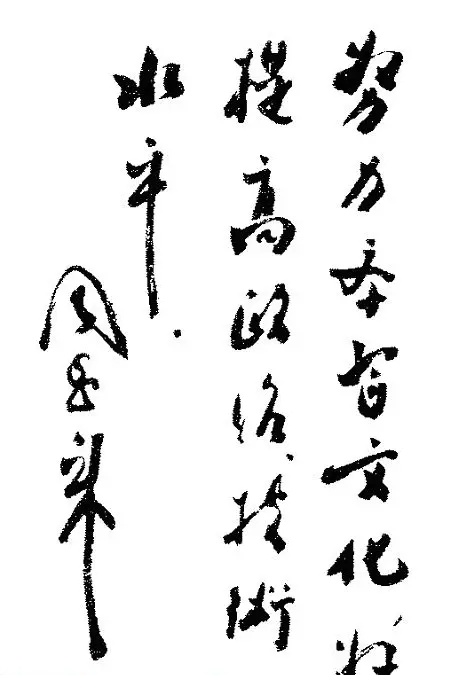 努力学習文化，
提高政治、技術
水平.
周恩来